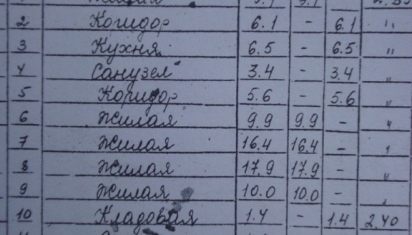 2 Коридор 6.1 - 6.1 "
3 Кухня 6.5 - 6.5 "
4 Санузел 3.4 - 3.4 "
5 Коридор 5.6 - 5.6 "
6 Жилая 9.9 9.9 - "
7 Жилая 16.4 16.4 - "
8 Жилая 17.9 17.9 - "
9 Жилая 10.0 10.0 - "
10 Кладовая 1.4 - 1.4 2,40